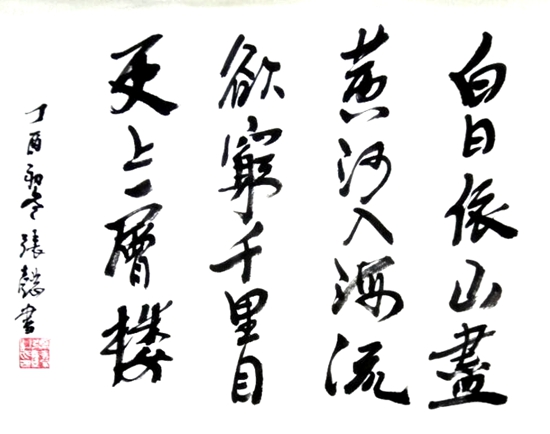 白日依山盡
黄河入海流
欲窮千里目
更上一層樓
丁酉初冬張懿書